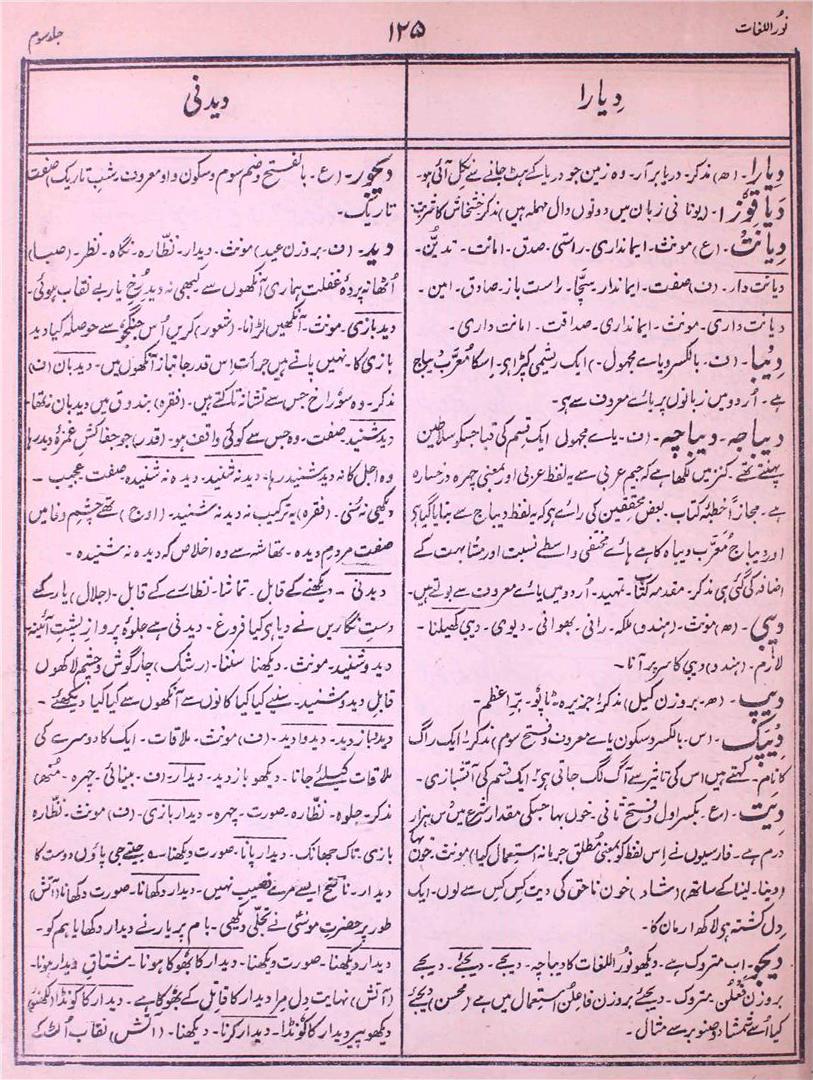 نورُ اللغات
۱۲۵
جلد سوم
دِیارا
دیدنی
دِیارا۔ (ھ) مذکر۔ دریا برآر۔ وہ زمین جو دریا کے ہٹ جانے سے نکل آئی ہو۔
دَیاقوزا۔ (یونانی زبان میں دونوں دال مہملہ ہیں) مذکر۔ خشخاش کا شربت
دِیانَت۔ (ع) مونث۔ ایمانداری۔ راستی۔ صدق۔ امانت۔ تدیُّن۔
دیانت دار۔ (ف) صفت۔ ایماندار۔ سچّا۔ راست باز۔ صادق۔ امین۔
دیانت داری۔ مونث۔ ایمانداری۔ صداقت۔ امانت داری۔
دِیبا۔ (ف۔ بالکسر و یاے مجہول۔) ایک ریشمی کپڑا ہی۔ اسکا مُعرّب دیباج
ہے۔ اُردو میں زبانوں پر یائے معروف سے ہی۔
دیباجہ۔ دیباچہ۔ (ف۔ یاے مجہول ایک قسم کی قبا جسکو سلاطین
پہنتے تھے۔ کنز میں لکھا ہے کہ جیم عربی سے یہ لفظ عربی اور بمعنی چہرہ و رخسارہ
ہے۔ مجازاً خطبۂ کتاب۔ بعض محققین کی رائے ہی کہ یہ لفظ دیباج سے بنایا گیا ہی
اور دیباج مُعرّب دیباہ کا ہے ہائے مختفی واسطے نسبت اور مشابہت کے
اضافہ کی گئی ہی مذکر۔ مقدمہ کتاب۔ تمہید۔ اُردو میں یائے معروف سے بولتے ہیں۔
دیبی۔ (ھ) مونث۔ (ہندو) ملکہ۔ رانی۔ بھوانی۔ دیوی۔ دیبی کھیلنا۔
لازم۔ (ہندو) دیبی کا سر پر آنا۔
دیپ۔ (ھ۔ بروزن کیل) مذکر! جزیرہ۔ ٹاپو۔ برِّ اعظم۔
دِیپَک۔ (س۔ بالکسر و سکون یاے معروف و فتح سوم) مذکر! ایک راگ
کا نام۔ کہتے ہیں اس کی تاثیر سے آگ لگ جاتی ہی! ایک قسم کی آتشبازی۔
دِیَت۔ (ع۔ بکسر اول و فتح ثانی۔ خوں بہا جسکی مقدار شرع میں دس ہزار
درم ہے۔ فارسیوں نے اس لفظ کو بمعنی مطلق جرمانہ استعمال کیا) مونث۔ خون بہا۔
(دینا۔ لینا کے ساتھ) (شاد) خون ناحق کی دیت کس کس سے لوں۔ ایک
دل کشتہ ہی لاکھ ارمان کا۔
دیجو۔ اب متروک ہے۔ دیکھو نورُ اللغات کا دیباچہ۔ دیجے۔ دیجئے۔ دیجے
بروزن فَعْلُن متروک۔ دیجئے بروزن فاعلُن استعمال میں ہے (محسن) دیجئے
کیا اُسے شمشاد و صنوبر سے مثال۔
دیجور۔ (ع۔ بالفتح و ضم سوم و سکون واو معروف۔ شب تاریک) صفت
تاریک۔
دید۔ (ف۔ بروزن عید) مونث۔ دیدار۔ نظّارہ۔ نگاہ۔ نظر۔ (صبا)
اُٹھا نہ پردۂ غفلت ہماری آنکھوں سے کبھی نہ دید رُخِ یار بے نقاب ہوئی۔
دید بازی۔ مونث۔ آنکھیں لڑانا۔ (شعور) کریں اُس جنگجو سے حوصلہ کیا دید
بازی کا۔ نہیں پاتے ہیں جراُت اس قدر جانباز آنکھوں میں۔ دیدبان (ف)
مذکر۔ وہ سوراخ جس سے نشانہ تکتے ہیں۔ (فقرہ) بندوق میں دیدبان نہ تھا۔
دید شنید۔ صفت۔ وہ جس سے کوئی واقف ہو۔ (قدر) جو جفا کش غمزۂ دید رہا
وہ اجل کا نہ دید شنید رہا۔ دید نہ شنید۔ دیدہ نہ شنیدہ۔ صفت عجیب۔
دیکھی نہ سُنی۔ (فقرہ) یہ ترکیب نہ دید نہ شنید۔ (اوج) تھے چشمِ وفا میں
صفت مردمِ دیدہ۔ تھا شہ سے وہ اخلاص کہ دیدہ نہ شنیدہ۔
دیدنی۔ دیکھنے کے قابل۔ تماشا۔ نظارے کے قابل۔ (جلال) یار کے
دستِ نگاریں نے دیا ہی کیا فروغ۔ دیدنی ہے جلوہ پرواز پشتِ آئینہ
دید و شنید۔ مونث۔ دیکھنا سننا۔ (رشک) چار گوش و چشم لاکھوں
قابلِ دید و شنید۔ سنیے کیا کیا کانوں سے آنکھوں سے کیا کیا دیکھئے۔
دید باز دید۔ دید وا دید۔ (ف) مونث۔ ملاقات۔ ایک کا دوسرے کی
ملاقات کیلئے جانا۔ دیکھو بازدید۔ دیدار۔ (ف۔ بینائی۔ چہرہ۔ منھ)
مذکر۔ جلوہ۔ نظّارہ۔ صورت۔ چہرہ۔ دیدار بازی۔ (ف) مونث۔ نظّارہ
بازی۔ تاک جھانک۔ دیدار پانا۔ صورت دیکھنا ؎ جیتے جی پاؤں دوست کا
دیدار۔ ناسخ ایسے مرے نصیب نہیں۔ دیدار دکھانا۔ صورت دکھانا (آتش)
طور پر حضرت موسیٰ نے تجلّی دیکھی۔ بام پر یار نے دیدار دکھایا ہم کو۔
دیدار دیکھنا۔ صورت دیکھنا۔ دیدار کا بھوکا ہونا۔ مشتاقِ دیدار ہونا۔
(آتش) نہایت دل مرا دیدار کا قاتل کے بھوکا ہے۔ دیدار کا کونڈا (لکھنؤ)
دیکھو پیر دیدار کا کونڈا۔ دیدار کرنا۔ دیکھنا۔ (آتش) نقاب اُلٹ کے